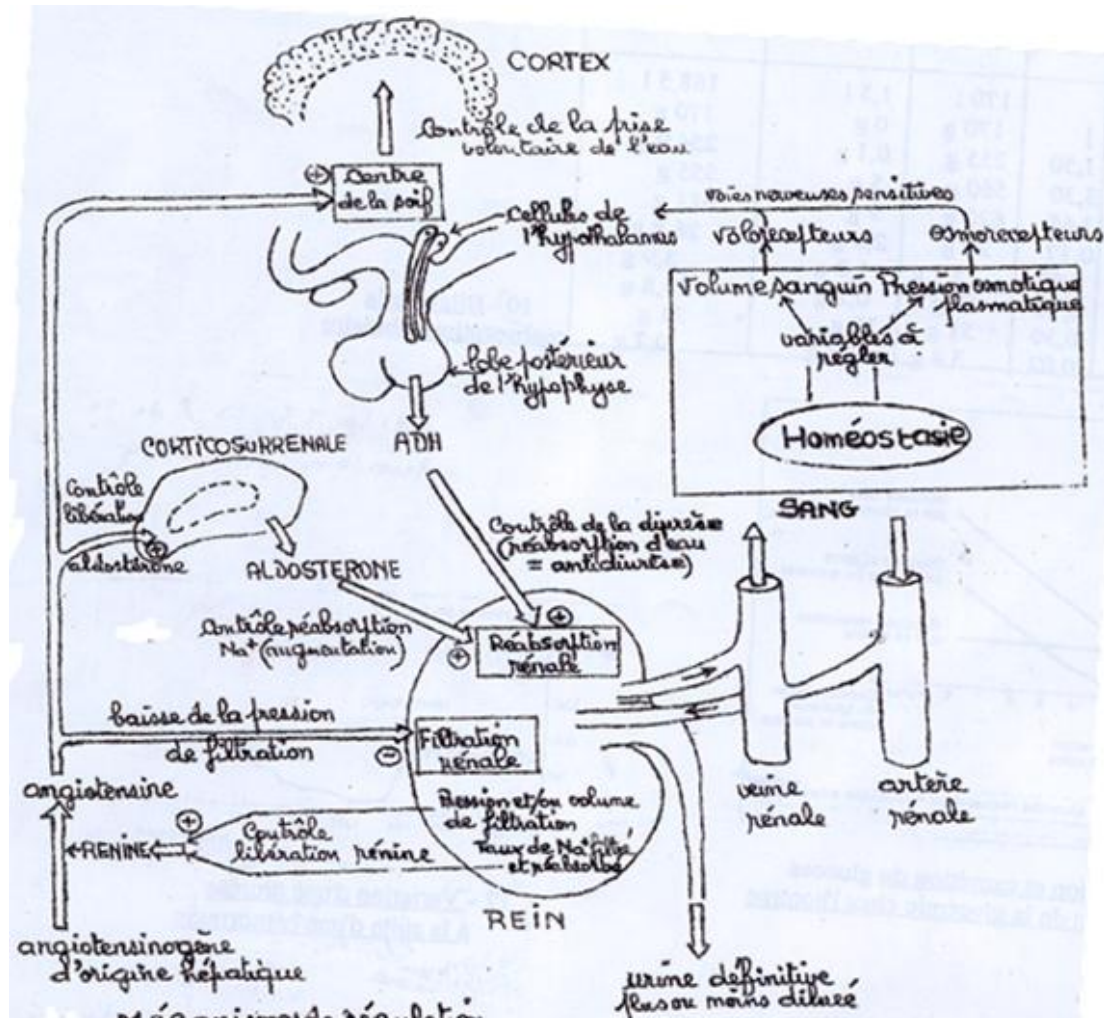 CORTEX
Contrôle de la prise
volontaire de l'eau
centre
de la soif
+
cellules de
l'hypothalamus
voies nerveuses sensitives
volorécepteurs
osmorécepteurs
Volume sanguin
Pression osmotique
plasmatique
variables à
régler
Homéostasie
SANG
lobe postérieur
de l'hypophyse
ADH
CORTICOSURRENALE
Contrôle
libération
aldostérone
+
ALDOSTERONE
Contrôle de la diurèse
(réabsorption d'eau
= antidiurèse)
Contrôle réabsorption
Na+ (augmentation)
+
+
Réabsorption
rénale
baisse de la pression
de filtration
-
Filtration
rénale
angiotensine
+
RENINE
Contrôle
libération rénine
Pression et/ou volume
de filtration
Taux de Na+ filtré
et réabsorbé
REIN
veine
rénale
artère
rénale
angiotensinogène
d'origine hépatique
urine définitive
plus ou moins diluée
1,5 l
168,5 l
170 g
0 g
170 g